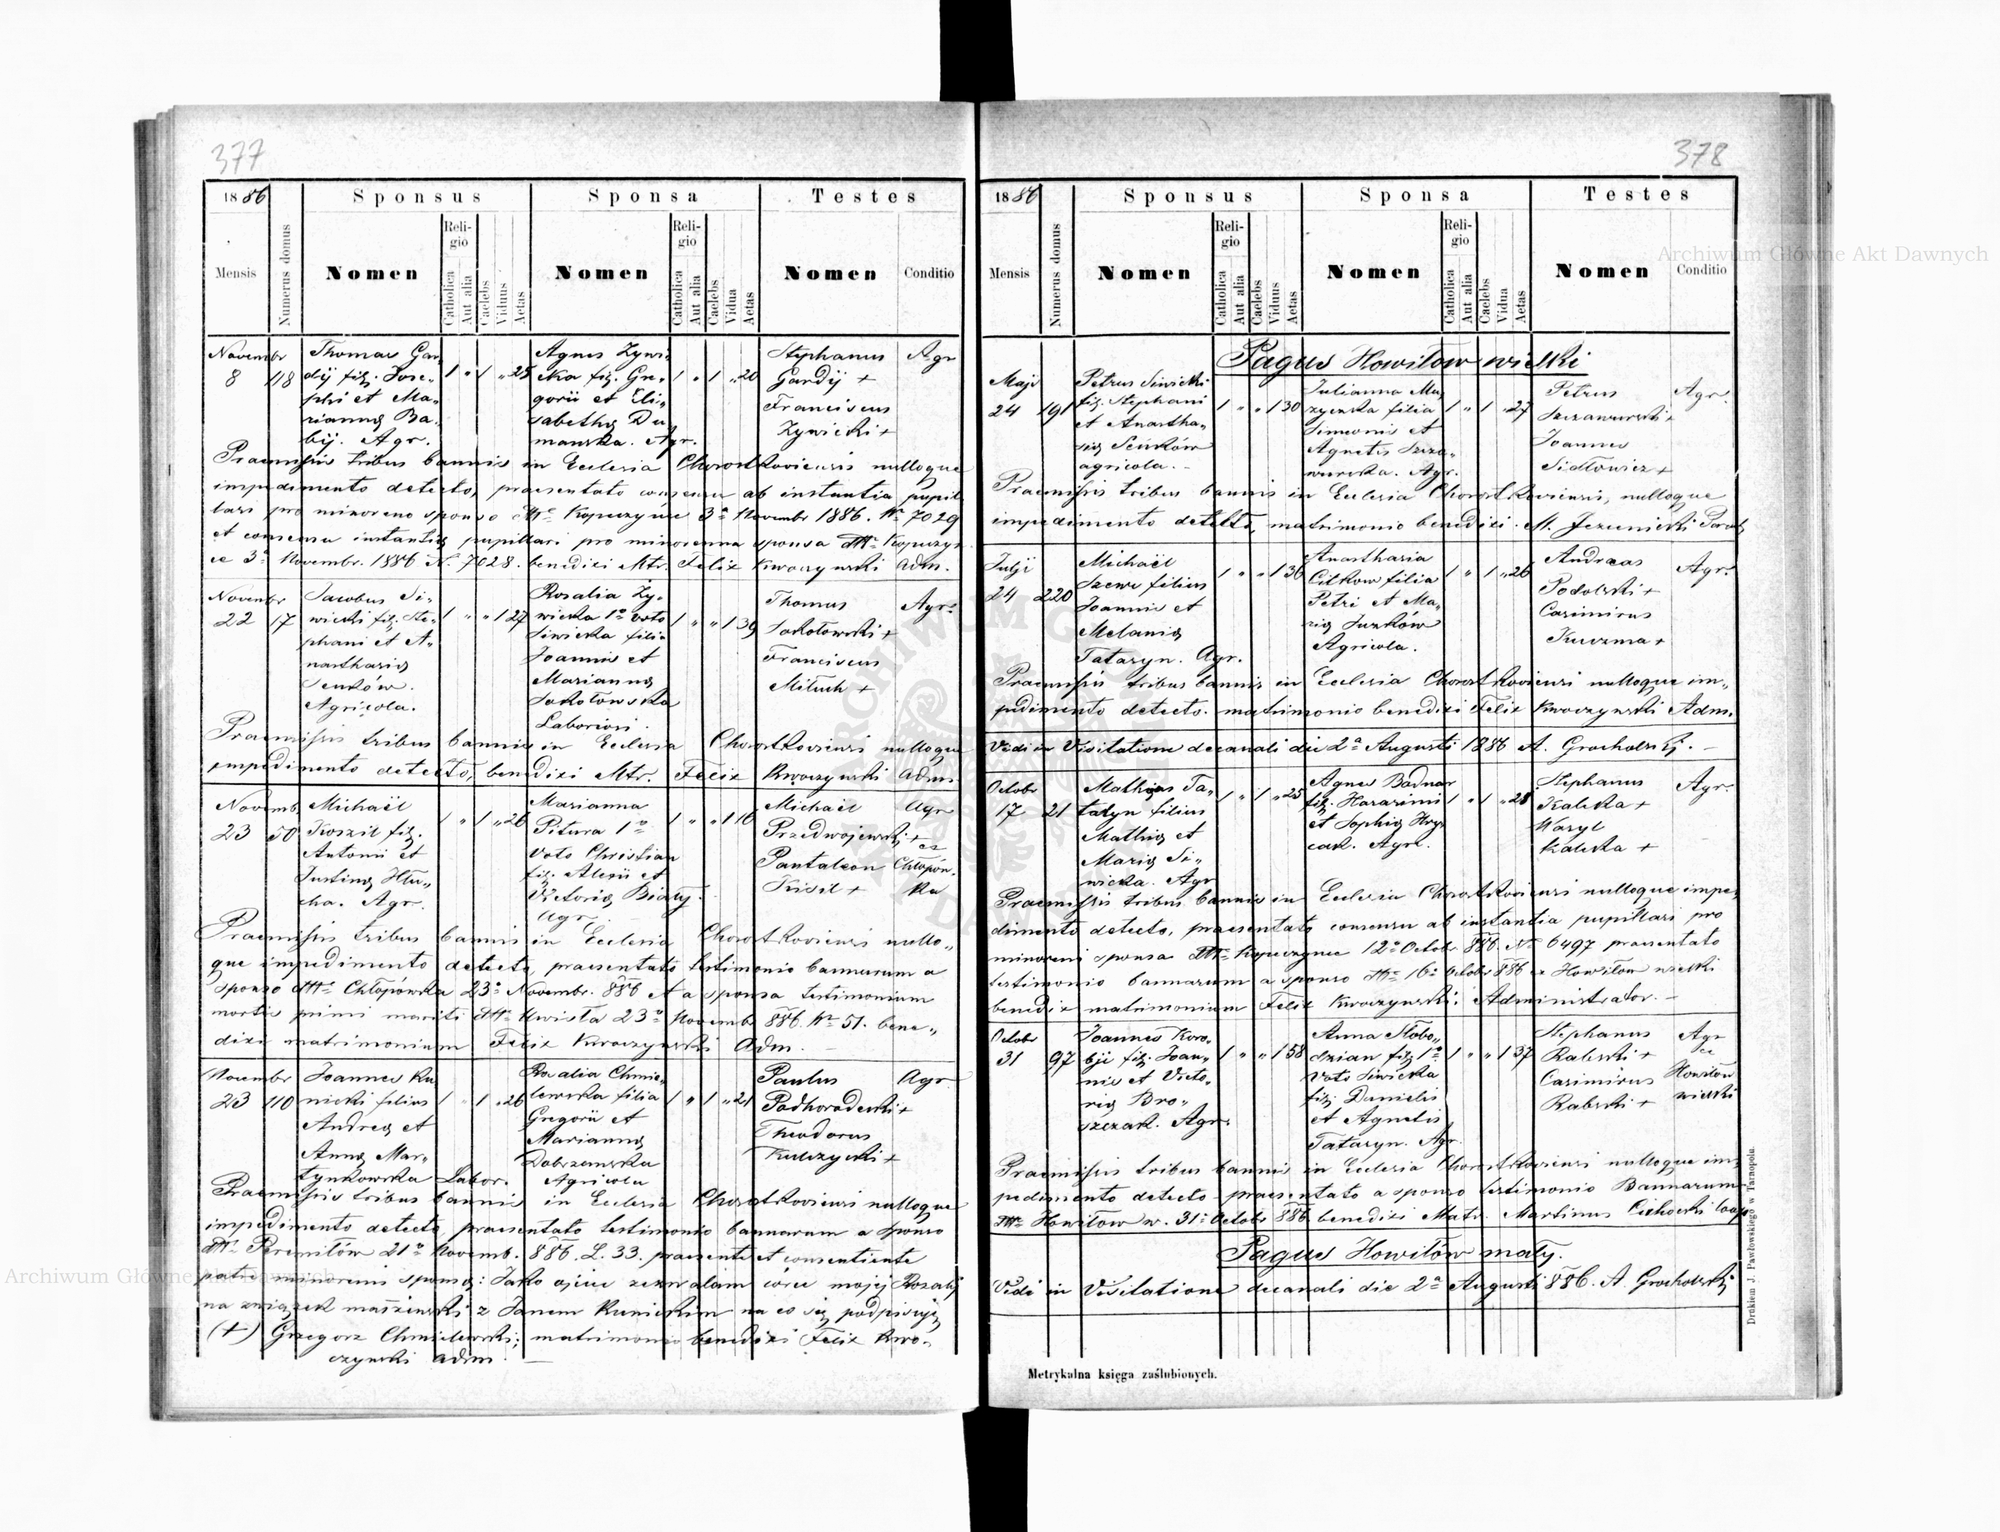 377
1886
Sponsus
Sponsa
Testes
Mensis
Numerus domus
Nomen
Religio
Catholica
Aut alia
Caelebs
Viduus
Aetas
Nomen
Religio
Catholica
Aut alia
Caelebs
Vidua
Aetas
Nomen
Conditio
Novembr
8
118
Thomas Gar-
dij filj. Jose-
phi et Ma-
riannę Ba-
bij. Agr.
1 " 1 " 25
Agnes Żywi-
cka filj. Gre-
gorii et Eli-
sabethę Du
manska. Agr.
1 " 1 " 20
Stephanus
Gardij +
Franciscus
Żywicki +
Agr
Praemissis tribus bannis in Ecclesia Chorostkoviensi nulloque
impedimento detecto, praesentato consensu ab instantia pupil
lari pro minoreno sponso Kopyczyńce 3a Novembr 1886. Nr 7029
et consensu instantię pupillari pro minorenna sponsa Kopyczyn
ce 3a Novembr. 1886 N. 7028. benedixi Mtr. Felix Kwoczyński Adm.
Novembr
22
17
Jacobus Si-
wicki filj. Ste-
phani et A-
nasthasię
Senków.
Agricola.
1 " " 1 27
Rosalia Ży-
wicka 1o voto
Siwicka filia
Joannis et
Mariannę
Sokołowska
Laboriosi.
1 " " 1 39
Thomas
Sokołowski +
Franciscus
Mituch +
Agr.
Praemissis tribus bannis in Ecclesia Chorostkoviensi nulloque
impedimento detecto, benedixi Mtr. Felix Kwoczynski Adm
Novemb.
23
50
Michaël
Koszil filj.
Antonii et
Justinę Hłu-
cha. Agr.
1 " 1 " 26
Marianna
Pitura 1o
voto Christian
filj. Alexii et
Victorię Biały.
Agr.
Michaël
Przedwojewski +
Pantaleon
Kisil +
Agr
ex
Chłopów-
ka
Praemissis tribus bannis in Ecclesia Chorostkoviensi nullo-
que impedimento detecto, praesentato testimonio bannarum a
sponso Chłopówka 23o Novembr. 886 et a sponsa testimonium
mortis primi mariti 23o Novembr 886. Nr 51. bene-
dixi matrimonium Felix Kwoczynski Adm.
Novembr
23
110
Joannes Ku
nicki filius
Andreę et
Annę Mar-
tynkowska Labor.
1 " 1 " 26
Rosalia Chmie-
lewska filia
Gregorii et
Mariannę
Dobrzanska
Agricola
1 " 1 " 21
Paulus
Podhorodecki +
Theodorus
Kulczycki +
Agr
Praemissis tribus bannis in Ecclesia Chorostkoviensi nulloque
impedimento detecto, praesentato testimonio bannarum a sponso
Peremiłów 21o Novemb. 886. L. 33. praesente et consentiente
patre minorenis sponsę: Jako ojciec zezwalam córce mojej Rozalij
na związek małżeński z Janem Kunickim na co się podpisuję
(+) Grzegorz Chmielewski; matrimonio benedixi Felix Kwo-
czynski Adm.
378
1886
Sponsus
Sponsa
Testes
Mensis
Numerus domus
Nomen
Religio
Catholica
Aut alia
Caelebs
Viduus
Aetas
Nomen
Religio
Catholica
Aut alia
Caelebs
Vidua
Aetas
Nomen
Conditio
Pagus Howiłów wielki
Maji
24
191
Petrus Siwicki
filj. Stephani
et Anastha-
się Seńków
agricola.
1 " " 1 30
Julianna Mu
zyczka filia
Simeonis et
Agnetis Szcza-
wurska. Agr.
1 " 1 " 27
Petrus
Szczawurski +
Joannes
Sidłowicz +
Agr.
Praemissis tribus bannis in Ecclesia Chorostkoviensi, nulloque
impedimento detecto, matrimonio benedixi. M. Jezienicki Paroch
Julji
24
220
Michaël
Szewc filius
Joannis et
Melanię
Tataryn. Agr.
1 " " 1 36
Anasthasia
Citkow filia
Petri et Ma-
rię Junków
Agricola.
1 " 1 " 26
Andreas
Podolski +
Casimirus
Kuczma +
Agr.
Praemissis tribus bannis in Ecclesia Chorostkoviensi nulloque im-
pedimento detecto. matrimonio benedixi Felix Kwoczynski Adm.
Vidi in Visitatione decanali die 2a Augusti 1886 A. Grocholski.
Octobr
17
21
Mathias Ta-
taryn filius
Mathię et
Marię Si-
wicka. Agr
1 " 1 " 25
Agnes Bodnar
filj. Harasimi
et Sophię Hry
cak. Agr.
1 " 1 " 28
Stephanus
Kaliska +
Wasyl
Kaliska +
Agr.
Praemissis tribus bannis in Ecclesia Chorostkoviensi nulloque impe-
dimento detecto, praesentato consensu ab instantia pupillari pro
minoreni sponsa Kopyczynce 12o Octobr 886. No 6497 praesentato
testimonio bannarum a sponso 16o Octobr 886 z Howiłow wielki
benedixi matrimonium Felix Kwoczynski; Administrator.
Octobr
31
97
Joannes Koro-
bji filj. Joan-
nis et Victo-
rię Bro-
szczak. Agr.
1 " " 1 58
Anna Słobo-
dzian filj 1o
voto Siwicka
filj Danielis
et Agnetis
Tataryn. Agr
1 " " 1 37
Stephanus
Rabski +
Casimirus
Rabski +
Agr
ex
Howiłow
wielki
Praemissis tribus bannis in Ecclesia Chorostkoviensi nulloque im-
pedimento detecto praesentato a sponso testimonio Bannarum
Howiłow w. 31o Octobr 886 benedixi Matr. Martinus Cichocki coop
Pagus Howiłów mały.
Vidi in Visitatione decanali die 2a Augusti 886. A. Grocholski
Metrykalna księga zaślubionych.
Drukiem J. Pawłowskiego w Tarnopolu.
Archiwum Główne Akt Dawnych
Archiwum Główne Akt Dawnych